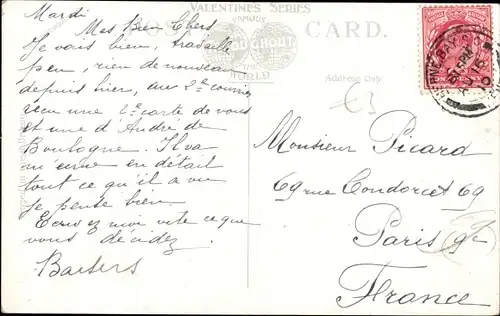 VALENTINES SERIES
FAMOUS
THROUGHOUT
THE
WORLD
POST CARD.
Address Only
Mardi
Mes Bien Chers
Je vais bien, travaille
peu, rien de nouveau
depuis hier, au 2e courrier
reçu une 2e carte de vous
et une d'André de
Boulogne. Il va
m'écrire en détail
tout ce qu'il a vu
je pense bien.
Ecrivez moi vite ce que
vous décidez.
Baisers
£3
Monsieur Picard
69 rue Condorcet 69
Paris 9e
France